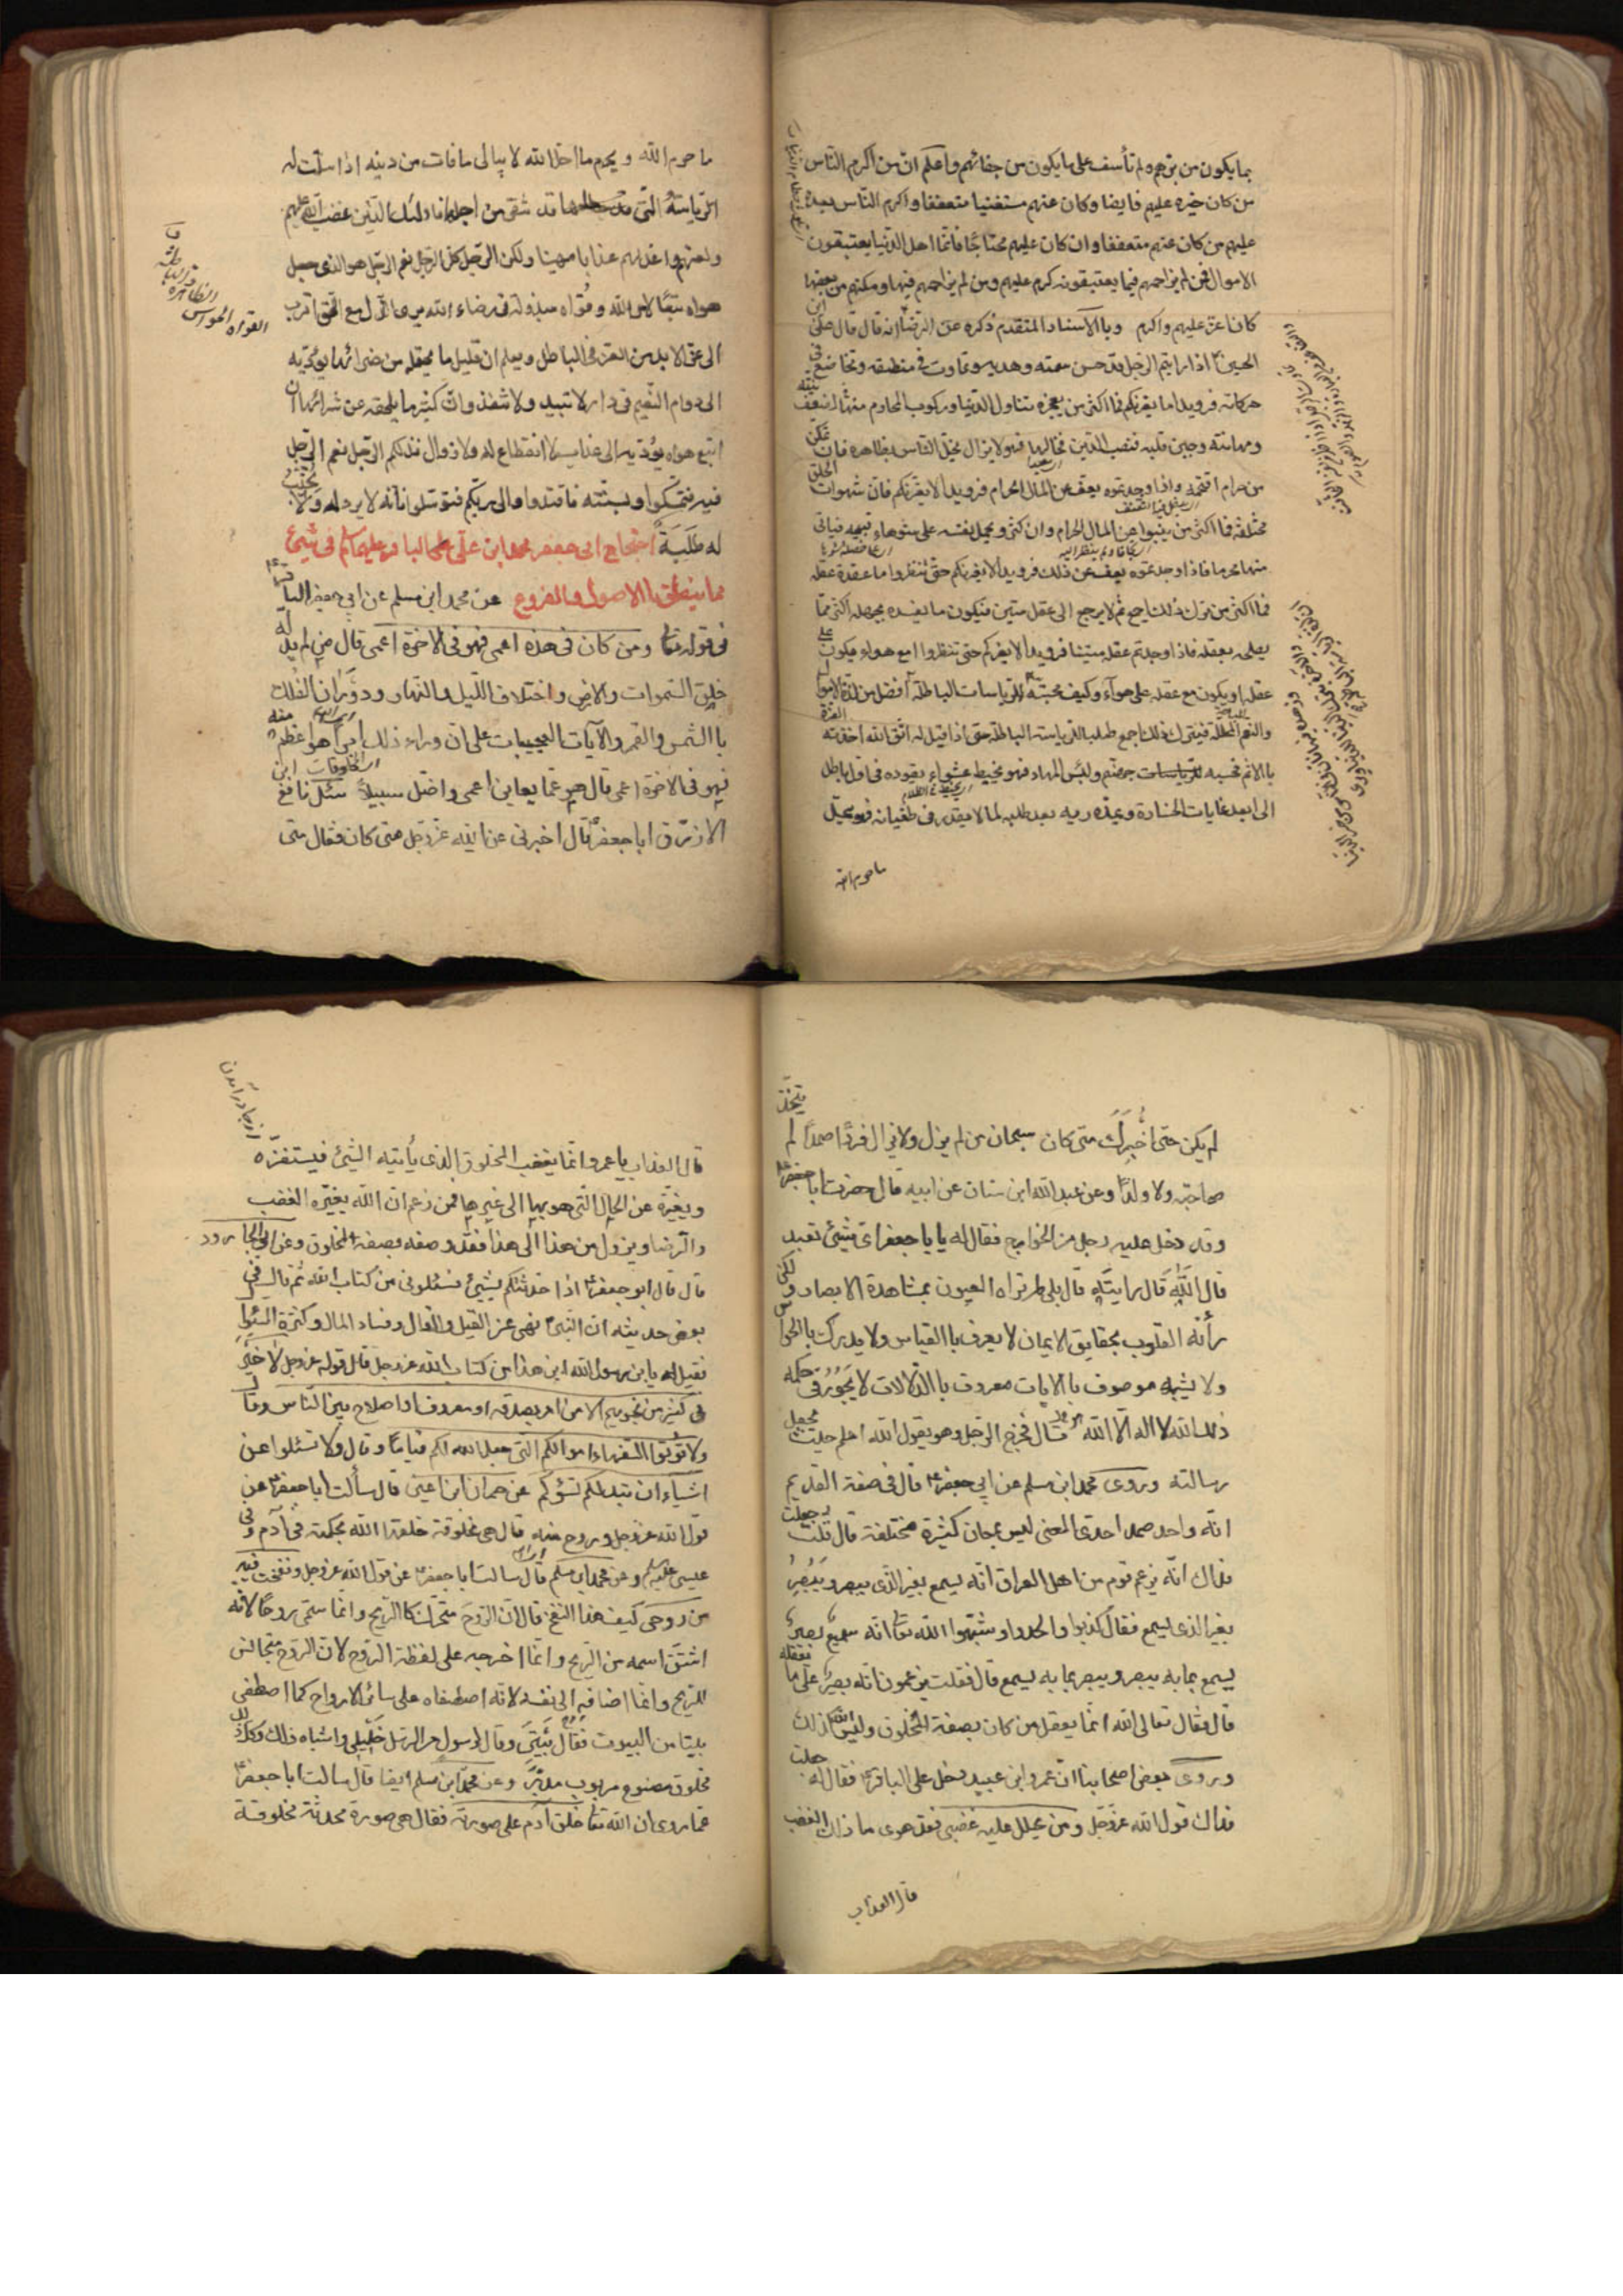 بما يكون من برهم ولم تأسف على ما يكون من جفائهم واعلم ان من اكرم الناس
من كان خيره عليهم فايضا وكان عنهم مستغنيا متعففا واكرم الناس بعده
عليهم من كان عنهم متعففا وان كان عليهم محتاجا فانما اهل الدنيا يعتبقون
الاموال فمن لم يزاحمهم فيما يعتبقونه كرم عليهم ومن لم يزاحمهم فيها ومكنهم من بعضها
كان اعز عليهم واكرم وبالاسناد المتقدم ذكره عن الرضا انه قال قال علي بن
الحسين اذا رايتم الرجل قد حسن سمته وهديه وتماوت في منطقه وتخاضع في
حركاته فرويدا ما يغرنكم فما اكثر من يعجزه تناول الدنيا وركوب المحارم منها لضعف نيته
ومهانته وجبن قلبه فنصب الدين فخا لها فهو لا يزال يختل الناس بظاهره فان تمكن
من حرام اقتحمه واذا وجدتموه يعف عن المال الحرام فرويدا لا يغرنكم فان شهوات الخلق
مختلفة فما اكثر من ينبوا عن المال الحرام وان كثر ويحمل نفسه على شوهاء قبيحه فياتي
منها محرما فاذا وجدتموه يعف عن ذلك فرويدا لا يغرنكم حتى تنظروا ما عقدة عقله
فما اكثر من ترك ذلك اجمع ثم لا يرجع الى عقل متين فيكون ما يفسده بجهله اكثر مما
يصلحه بعقله فاذا وجدتم عقله متينا فرويدا لا يغركم حتى تنظروا امع هواه يكون على
عقله او يكون مع عقله على هواه وكيف محبته للرياسات الباطلة افضل من لذة الاموال
والنعم المحللة فيترك ذلك اجمع طلبا للرياسة الباطلة حتى اذا قيل له اتق الله اخذته العزة
بالاثم فحسبه جهنم ولبئس المهاد فهو يخبط عشواء يقوده في اول باطل
الى ابعد غايات الخسارة ويمده ربه بعد طلبه لما لا يقدر في طغيانه فهو يحل
ما حرم الله
ما حرم الله ويحرم ما احل الله لا يبالى ما فات من دينه اذا سلت له
الرياسة التي قد شقى من اجلها فاولئك الذين غضب الله عليهم
ولعنهم واعد لهم عذابا مهينا ولكن الرجل كل الرجل نعم الرجل هو الذى جعل
هواه تبعا لامر الله وقواه مبذولة فى رضاء الله يرى الذل مع الحق اقرب
الى عز الابد من العز فى الباطل ويعلم ان قليل ما يحتمله من ضرائها يؤديه
الى دوام النعيم فى دار لا تبيد ولا تنفذ وان كثير ما يلحقه من سرائها ان
اتبع هواه يؤديه الى عذاب لا انقطاع له ولا زوال فذلكم الرجل نعم الرجل
فبه فتمسكوا وبسنته فاقتدوا والى ربكم فتوسلوا فانه لا يرد له ولا تخيب
له طلبة احتجاج ابى جعفر محمد ابن على الباقر عليهما السلام فى شيئ
مما يتعلق بالاصول والفروع عن محمد ابن مسلم عن ابي جعفر الباقر
فى قوله تعالى ومن كان فى هذه اعمى فهو فى الاخرة اعمى قال من لم يدله
خلق السموات والارض واختلاف الليل والنهار ودوران الفلك
باالشمس والقمر والآيات العجيبات على ان وراء ذلك امرا هو اعظم منه
فهو فى الاخرة اعمى قال فهو عما يعاين اعمى واضل سبيلا سئل نافع ابن
الازرق ابا جعفر قال اخبرنى عن الله عز وجل متى كان فقال متى
القواه الحواس الظاهرة والباطنة
لم يكن حتى اُخبرك متى كان سبحان من لم يزل ولا يزال فردا صمدا لم يتخذ
صاحبة ولا ولدا وعن عبدالله ابن سنان عن ابيه قال حضرت ابا جعفر
وقد دخل عليه رجل من الخوارج فقال له يا ابا جعفر اى شيئ تعبد
قال الله قال رايته قال بلى لم تراه العيون بمشاهدة الابصار ولكن
رأته القلوب بحقايق الايمان لا يعرف باالقياس ولا يدرك بالحواس
ولا يشبه موصوف بالايات معروف باالدلالات لا يجور فى حكمه
ذلك الله لا اله الا الله قال فخرج الرجل وهو يقول الله اعلم حيث يجعل
رسالته وروى محمد ابن مسلم عن ابي جعفر قال فى صفة القديم
انه واحد صمد احدى المعنى ليس بمعان كثيرة مختلفة قال قلت جعلت
فداك انه يزعم قوم من اهل العراق انه يسمع بغير الذى يبصر ويبصر
بغير الذى يسمع فقال كذبوا والحدوا وشبهوا الله تعالى انه سميع بصير
يسمع بما به يبصر ويبصر بما به يسمع قال فقلت يزعمون انه بصير على ما يعقله
قال فقال تعالى الله انما يعقل من كان بصفة المخلوق وليس الله كذلك
وروى بعض اصحابنا ان عمرو ابن عبيد دخل على الباقر فقال له جعلت
فداك قول الله عز وجل ومن يحلل عليه غضبى فقد هوى ما ذلك الغضب
قال العذاب
قال العذاب يا عمرو انما يغضب المخلوق الذى ياتيه الشيئ فيستفزه
ويغيره عن الحال التى هو بها الى غيرها فمن زعم ان الله يغيره الغضب
والرضا ويزول من هذا الى هذا فقد وصفه بصفة المخلوق وعن ابى الجارود
قال قال ابو جعفر اذا حدثتكم بشيئ فسئلونى من كتاب الله ثم قال فى
بعض حديثه ان النبى نهى عن القيل والقال وفساد المال وكثرة السئوال
فقيل له يا بن رسول الله اين هذا من كتاب الله عز وجل قال قوله عز وجل لا خير
فى كثير من نجويهم الا من امر بصدقة او معروف او اصلاح بين الناس وقال
ولا تؤتوا السفهاء اموالكم التى جعل الله لكم قياما وقال ولا تسئلوا عن
اشياء ان تبدلكم تسؤكم عن حمران ابن اعين قال سألت ابا جعفر عن
قول الله عز وجل وروح منه قال هى مخلوقة خلقها الله بحكمته فى آدم وفى
عيسى عليهما السلام وعن محمد ابن مسلم قال سالت ابا جعفر عن قول الله عز وجل ونفخت فيه
من روحى كيف هذا النفخ قال ان الروح متحرك كالريح وانما سمى روحا لانه
اشتق اسمه من الريح وانما اخرجه على لفظة الروح لان الروح متجانس
للريح وانما اضافه الى نفسه لانه اصطفاه على سائر الارواح كما اصطفى
بيتا من البيوت فقال بيتى وقال لرسول من الرسل خليلى واشباه ذلك وكل ذلك
مخلوق مصنوع مربوب مدبر وعن محمد ابن مسلم ايضا قال سالت ابا جعفر
عما روى ان الله تعالى خلق آدم على صورته فقال هى صورة محدثة مخلوقة